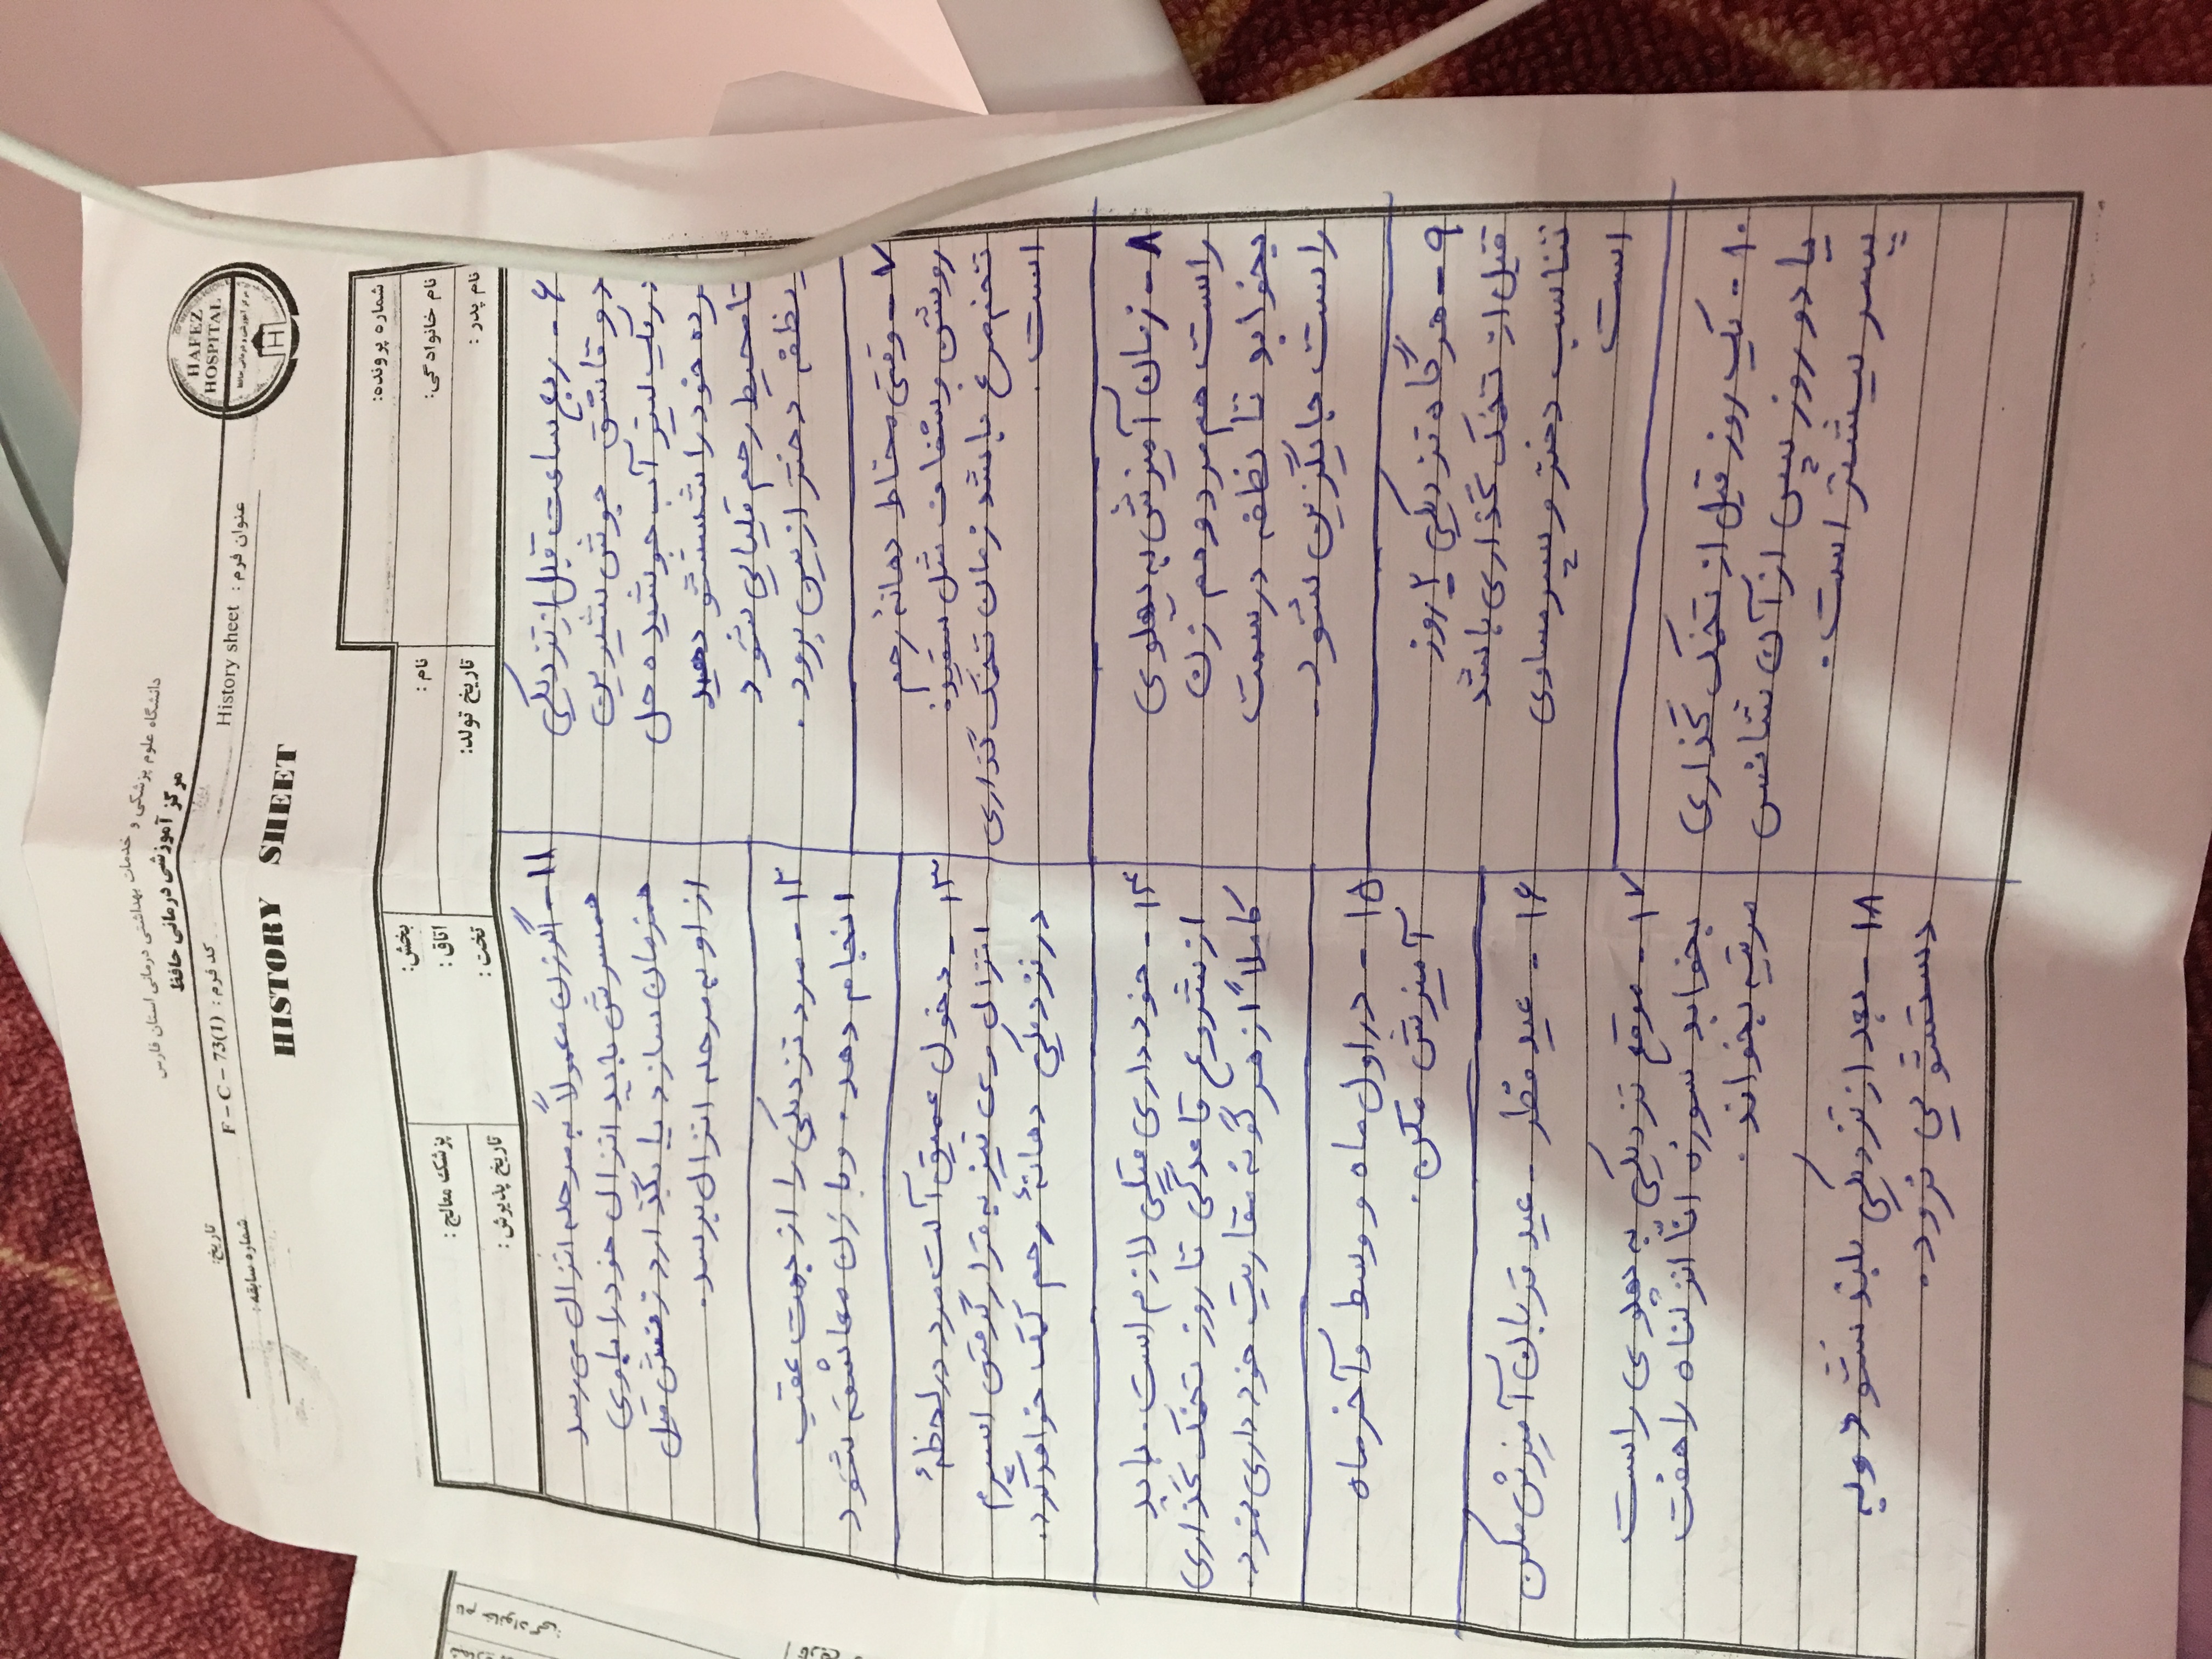 دانشگاه علوم پزشکی و خدمات بهداشتی درمانی استان فارس
مرکز آموزشی درمانی حافظ
HAFEZ
HOSPITAL
عنوان فرم : History sheet
کد فرم : F - C - 73(1)
تاریخ:
شماره سابقه :
HISTORY SHEET
شماره پرونده:
نام خانوادگی:
نام :
بخش:
اتاق :
پزشک معالج :
نام پدر :
تاریخ تولد:
تخت :
تاریخ پذیرش :
۶ - ربع ساعت قبل از نزدیکی
دو قاشق جوش شیرین
در یک لیتر آب جوشیده حل
کرده خود را شستشو دهید
تا محیط رحم قلیایی شود
نطفه دختر از بین برود .
۷ - وقتی مخاط دهانهٔ رحم
روشن و شفاف مثل سفیده
تخم مرغ باشد زمان تخمک گذاری
است .
۸ - زمان آمیزش به پهلوی
راست هم مرد و هم زن
بخوابد تا نطفه در سمت
راست جایگزین شود ..
۹ - هرگاه نزدیکی ۲ روز
قبل از تخمک گذاری باشد
تناسب دختر و پسر مساوی
است
۱۰ - یک روز قبل از تخمک گذاری
یا دو روز پس از آن شانس
پسر بیشتر است .
۱۱ - اگر زن معمولاً به مرحله انزال می رسد
همسرش باید انزال خود را با وی
همزمان سازد یا بگذارد زنش قبل
از او به مرحله انزال برسد .
۱۲ - مرد نزدیکی را از جهت عقب
انجام دهد . و با زن معاشقه شود
۱۳ - دخول عمیق آلت مرد در لحظهٔ
انزال وی نیز به قرار گرفتن اسپرم
در نزدیکی دهانهٔ رحم کمک خواهد کرد .
۱۴ - خودداری قبلی لازم است . باید
از شروع قاعدگی تا روز تخمک گذاری
کاملاً از هر گونه مقاربت خودداری نمود .
۱۵ - در اول ماه و وسط و آخر ماه
آمیزش مکن .
۱۶ - عید فطر . عید قربان آمیزش مکن
۱۷ - موقع نزدیکی به پهلوی راست
بخوابد سوره انّا انزلناه را هفت
مرتبه بخواند .
۱۸ - بعد از نزدیکی بلند نشود و به
دستشویی نرود .
نام خانوادگی
نام